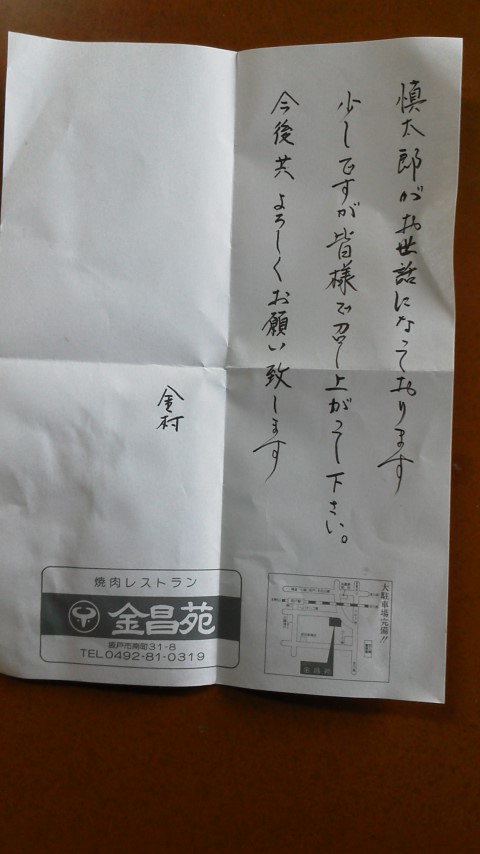 慎太郎がお世話になっております
少しですが皆様で召し上がって下さい。
今後共よろしくお願い致します
金村
焼肉レストラン
金昌苑
坂戸市南町31-8
TEL0492-81-0319
大駐車場完備!!
金昌苑